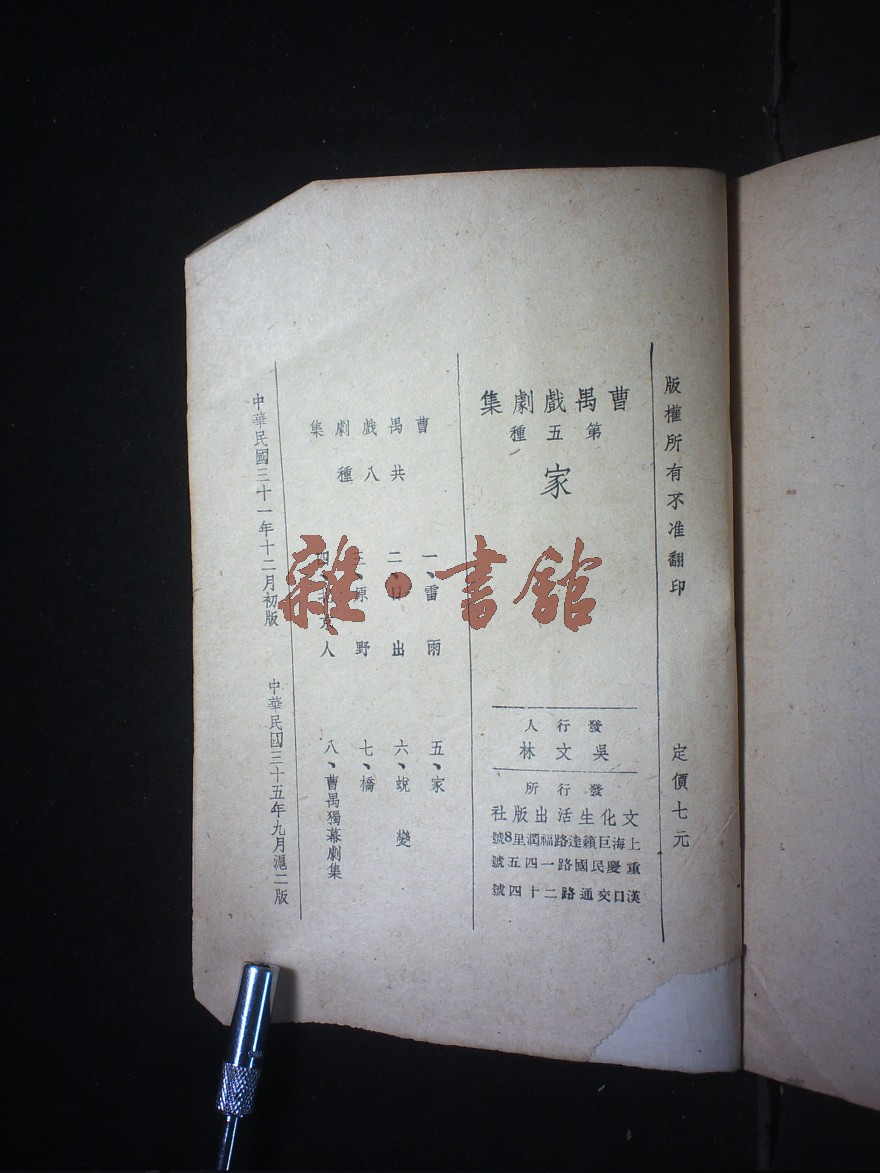 版權所有不准翻印
定價七元
曹禺戲劇集
第五種
家
發行人
吳文林
發行所
文化生活出版社
上海巨籟達路福潤里8號
重慶民國路一四五號
漢口交通路二十四號
曹禺戲劇集
共八種
一、雷雨
二、日出
三、原野
四、北京人
五、家
六、蛻變
七、橋
八、曹禺獨幕劇集
中華民國三十一年十二月初版
中華民國三十五年九月滬二版
雜·書館